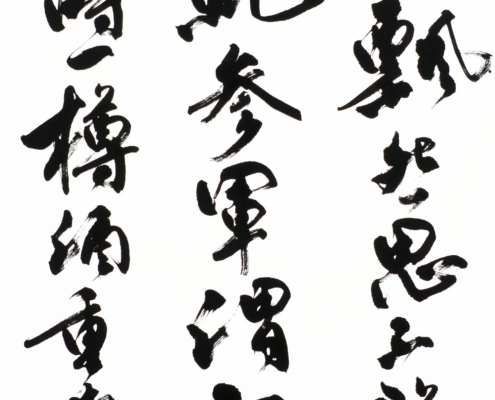 飄然思不
参軍渭
時一樽酒重